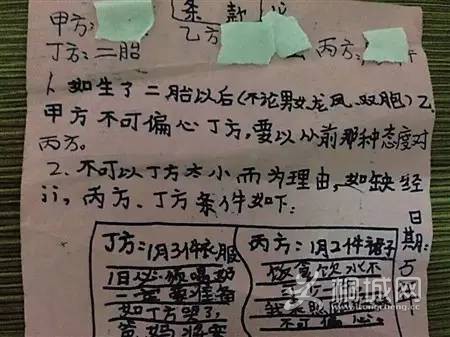 条款
甲方:
乙方
丙方:
丁方:二胎
1、如生了二胎以后(不论男女龙凤、双胞)乙
甲方不可偏心丁方,要以从前那种态度对
丙方。
2、不可以丁方太小而为理由,如缺经
济,丙方、丁方条件如下:
丁方:1月3件衣服
1日必须喝奶
一定要准备
如丁方哭了,
爸妈
丙方:1月2件裙子
饭食饮水不
不可偏心。
日期:5
桐城网